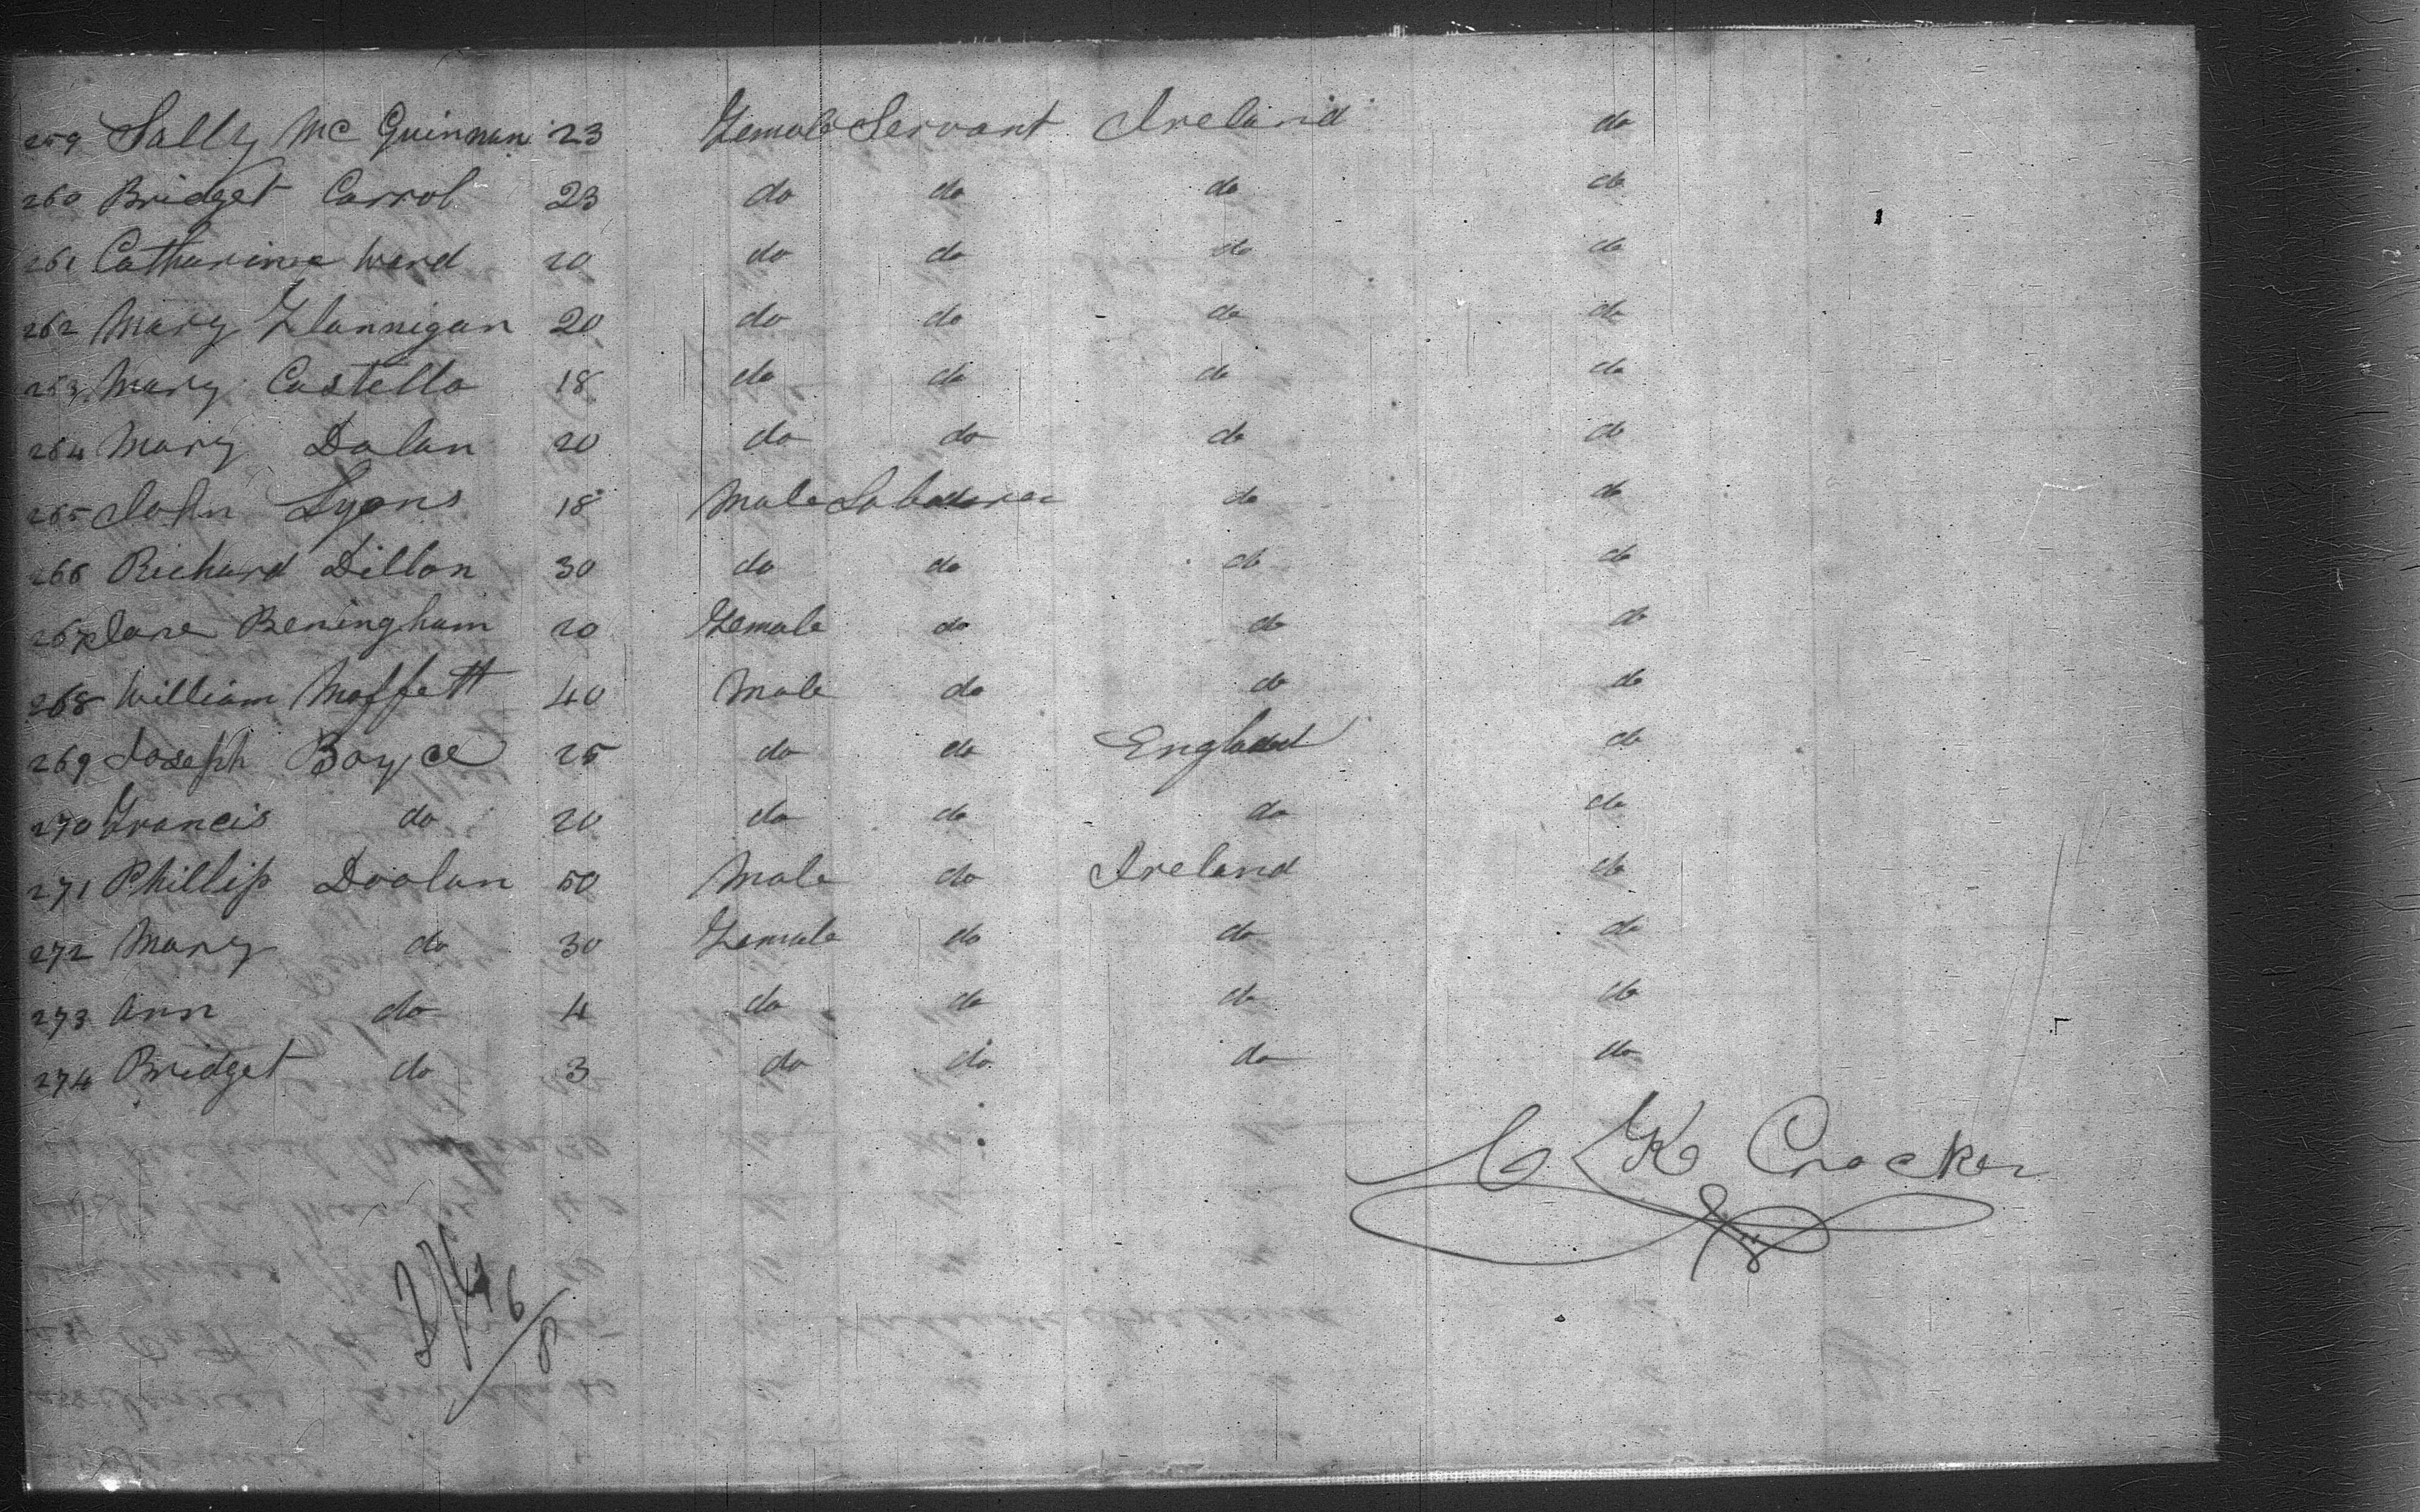 259 Sally Mc Guinnan 23 Female Servant Ireland do
260 Bridget Carrol 23 do do do do
261 Catharine Ward 20 do do do do
262 Mary Flannigan 20 do do do do
263 Mary Costello 18 do do do do
264 Mary Dolan 20 do do do do
265 John Lyons 18 Male Labourer do do
266 Richard Dillon 30 do do do do
267 Jane Beningham 20 Female do do do
268 William Moffett 40 Male do do do
269 Joseph Boyce 25 do do England do
270 Francis do 20 do do do do
271 Phillip Doolan 50 Male do Ireland do
272 Mary do 30 Female do do do
273 Ann do 4 do do do do
274 Bridget do 3 do do do do
C K Crocker